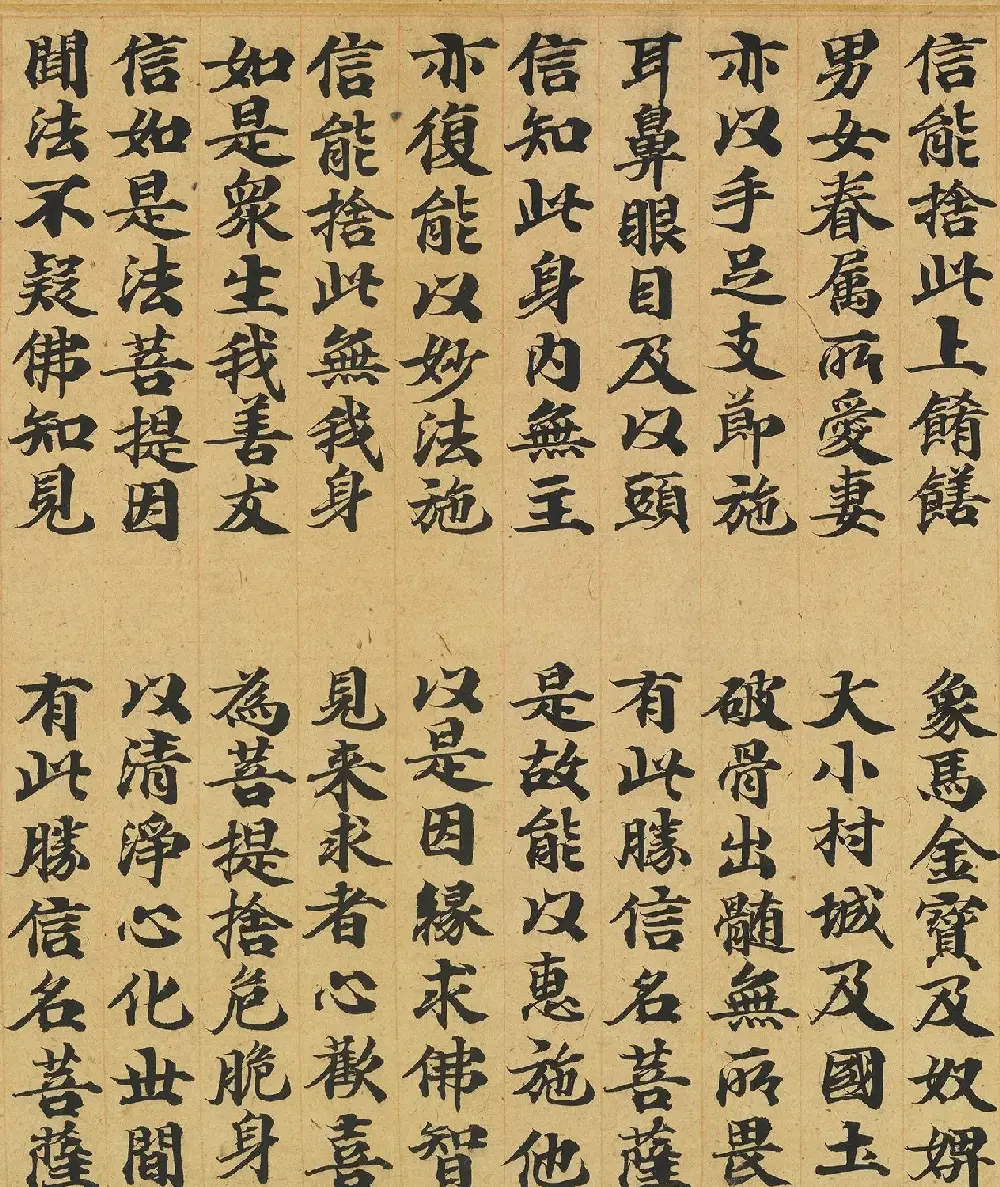 信能捨此上餚饍 象馬金寶及奴婢
男女眷属所愛妻 大小村城及國土
亦以手足支節施 破骨出髓無所畏
耳鼻眼目及以頭 有此勝信名菩薩
信知此身内無主 是故能以惠施他
亦復能以妙法施 以是因緣求佛智
信能捨此無我身 見来求者心歡喜
如是衆生我善友 為菩提捨危脆身
信如是法菩提因 以清淨心化世間
聞法不疑佛知見 有此勝信名菩薩